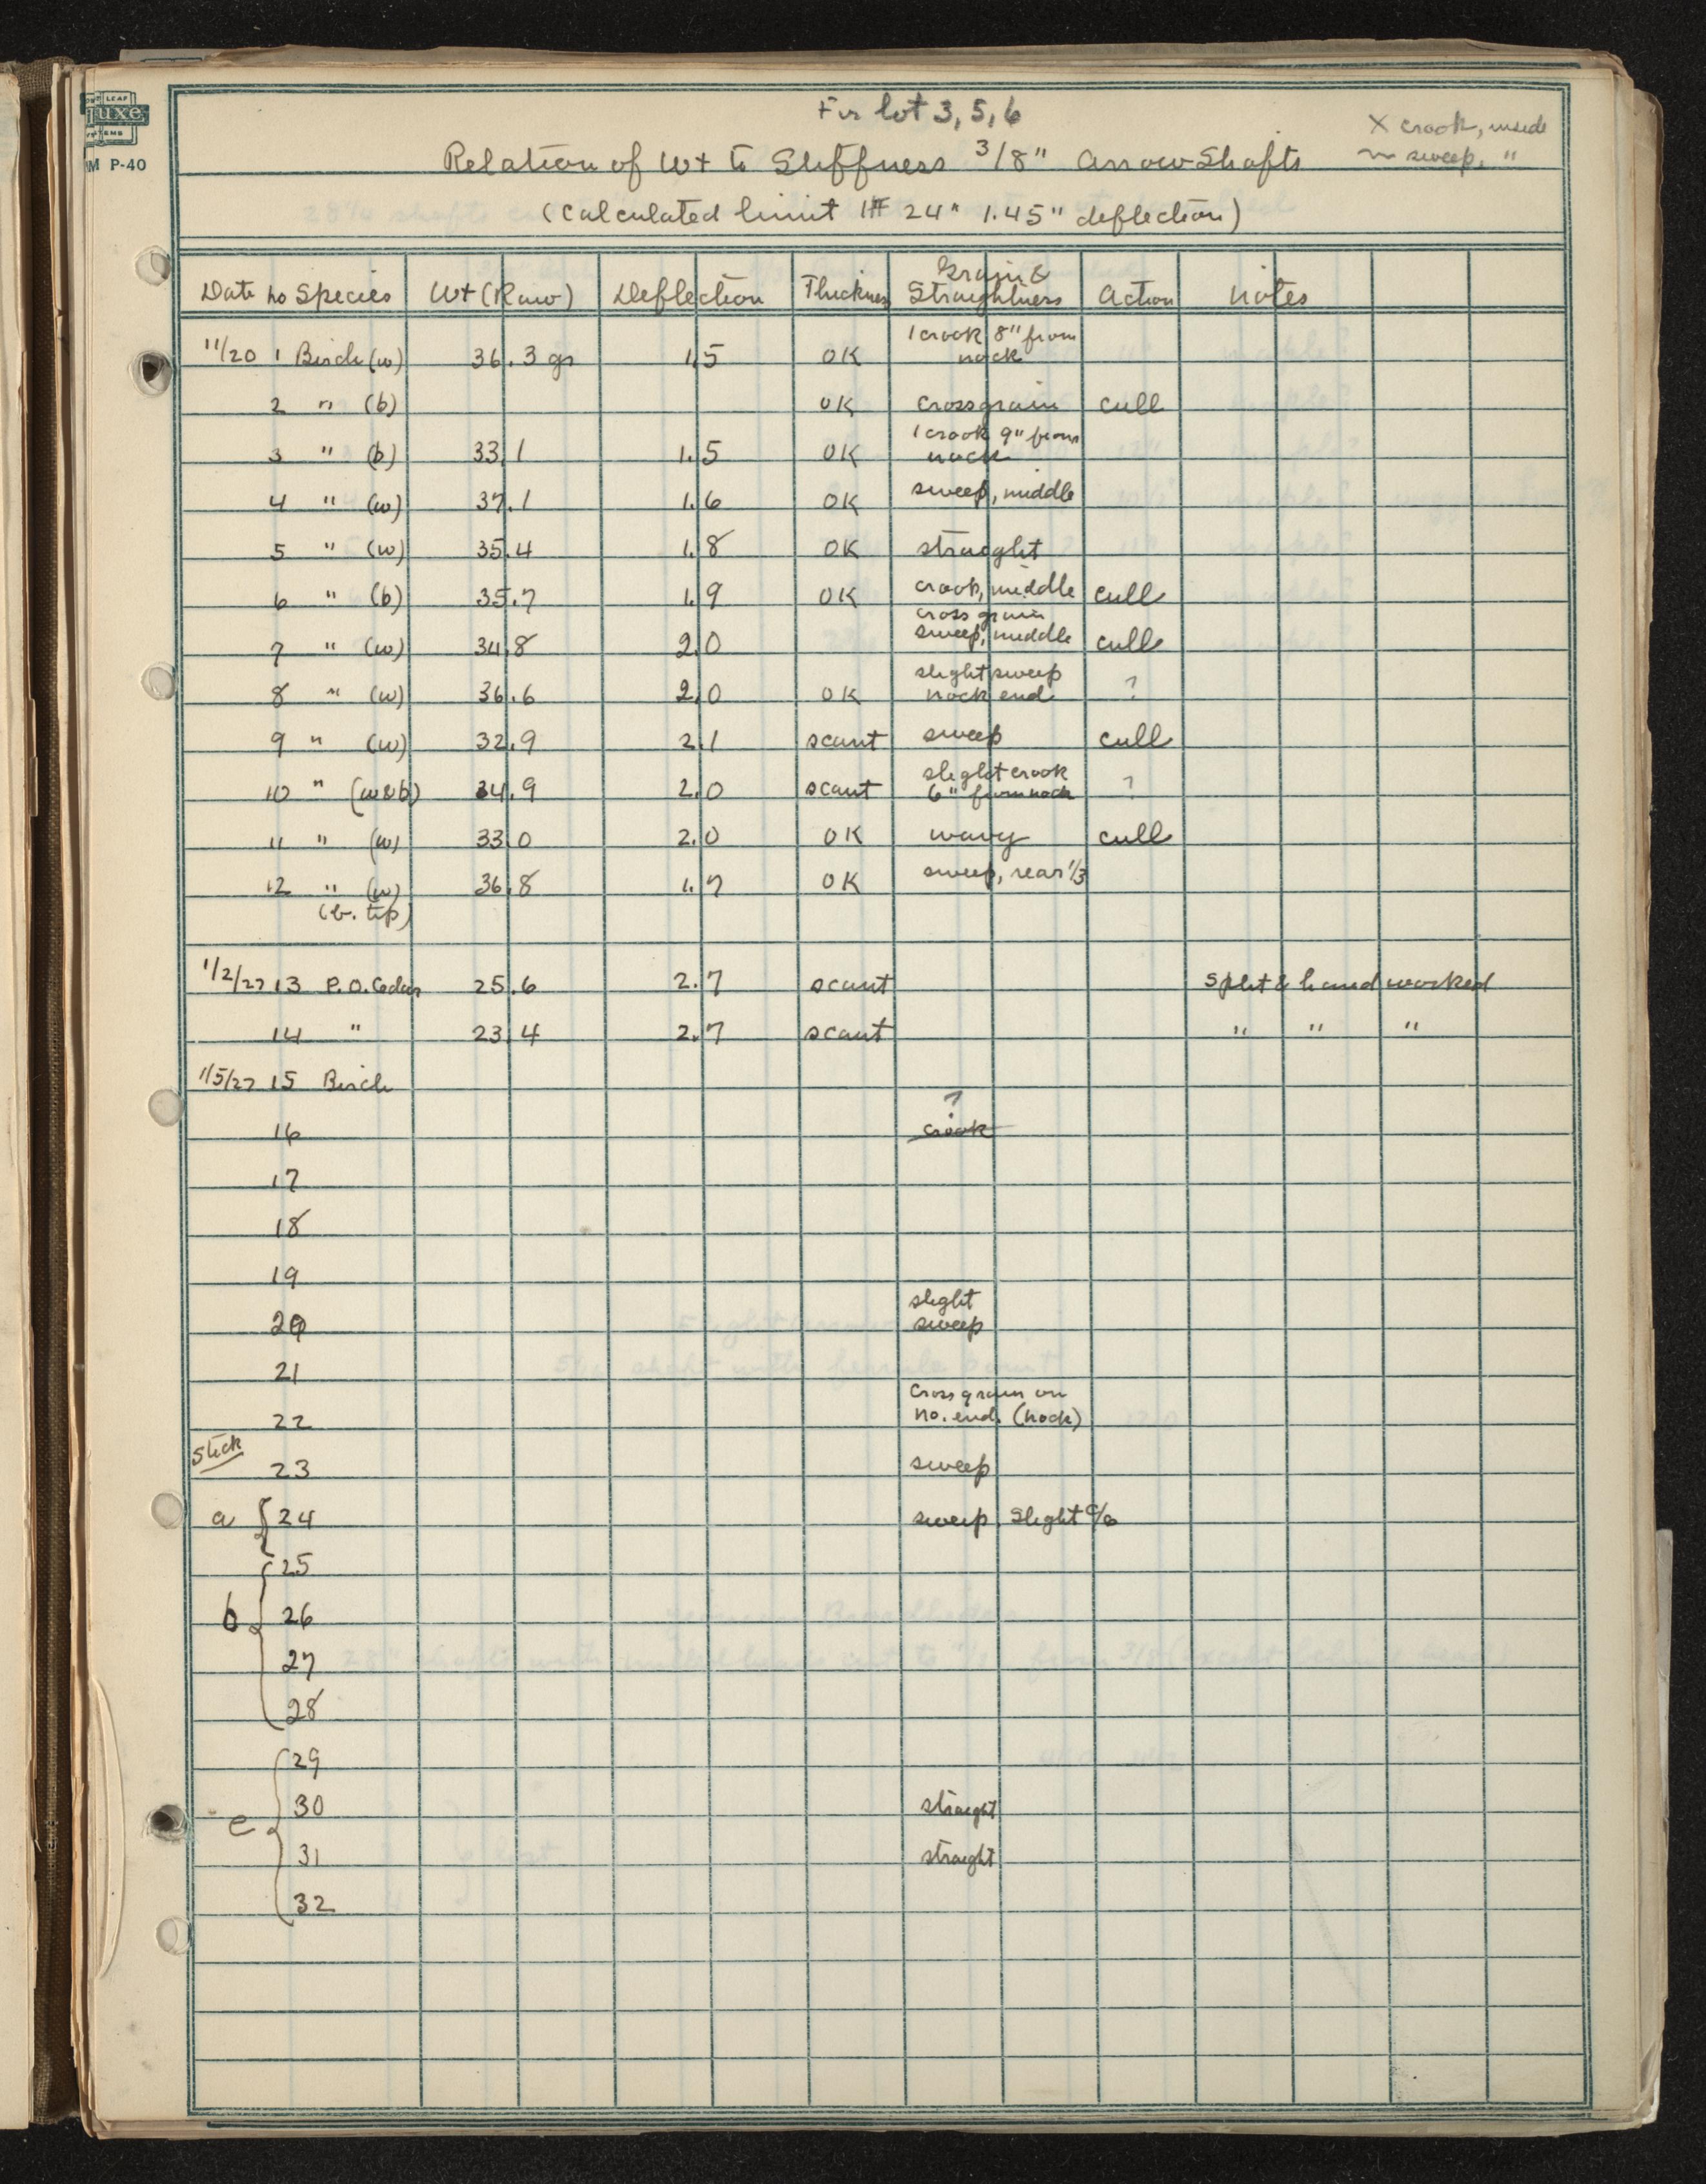 LEAF
uxe
TEMS
M P-40
For lot 3, 5, 6
X crook, inside
~ sweep, "
Relation of Wt to Stiffness 3/8" Arrow Shafts
(Calculated limit 1# 24" 1.45" deflection)
Date No Species Wt (Raw) Deflection Thickness Grain & Straightness Action Notes
11/20 1 Birch (w) 36.3 gr 1.5 OK 1 crook 8" from nock
2 " (b) OK crossgrain cull
3 " (b) 33.1 1.5 OK 1 crook 9" from nock
4 " (w) 37.1 1.6 OK sweep, middle
5 " (w) 35.4 1.8 OK straight
6 " (b) 35.7 1.9 OK crook, middle cull
7 " (w) 34.8 2.0 cross grain sweep, middle cull
8 " (w) 36.6 2.0 OK slight sweep nock end ?
9 " (w) 32.9 2.1 scant sweep cull
10 " (w&b) 34.9 2.0 scant slight crook 6" from nock ?
11 " (w) 33.0 2.0 OK wavy cull
12 " (w) 36.8 1.7 OK sweep, rear 1/3
(b. tip)
1/2/27 13 P.O. Cedar 25.6 2.7 scant Split & hand worked
14 " 23.4 2.7 scant " " "
1/5/27 15 Birch
?
16 crook
17
18
19
20 slight sweep
21
22 Cross grain on no. end. (nock)
Stick
23 sweep
a { 24 sweep, slight c/o
25
b { 26
27
28
29
30 straight
e {
31 straight
32